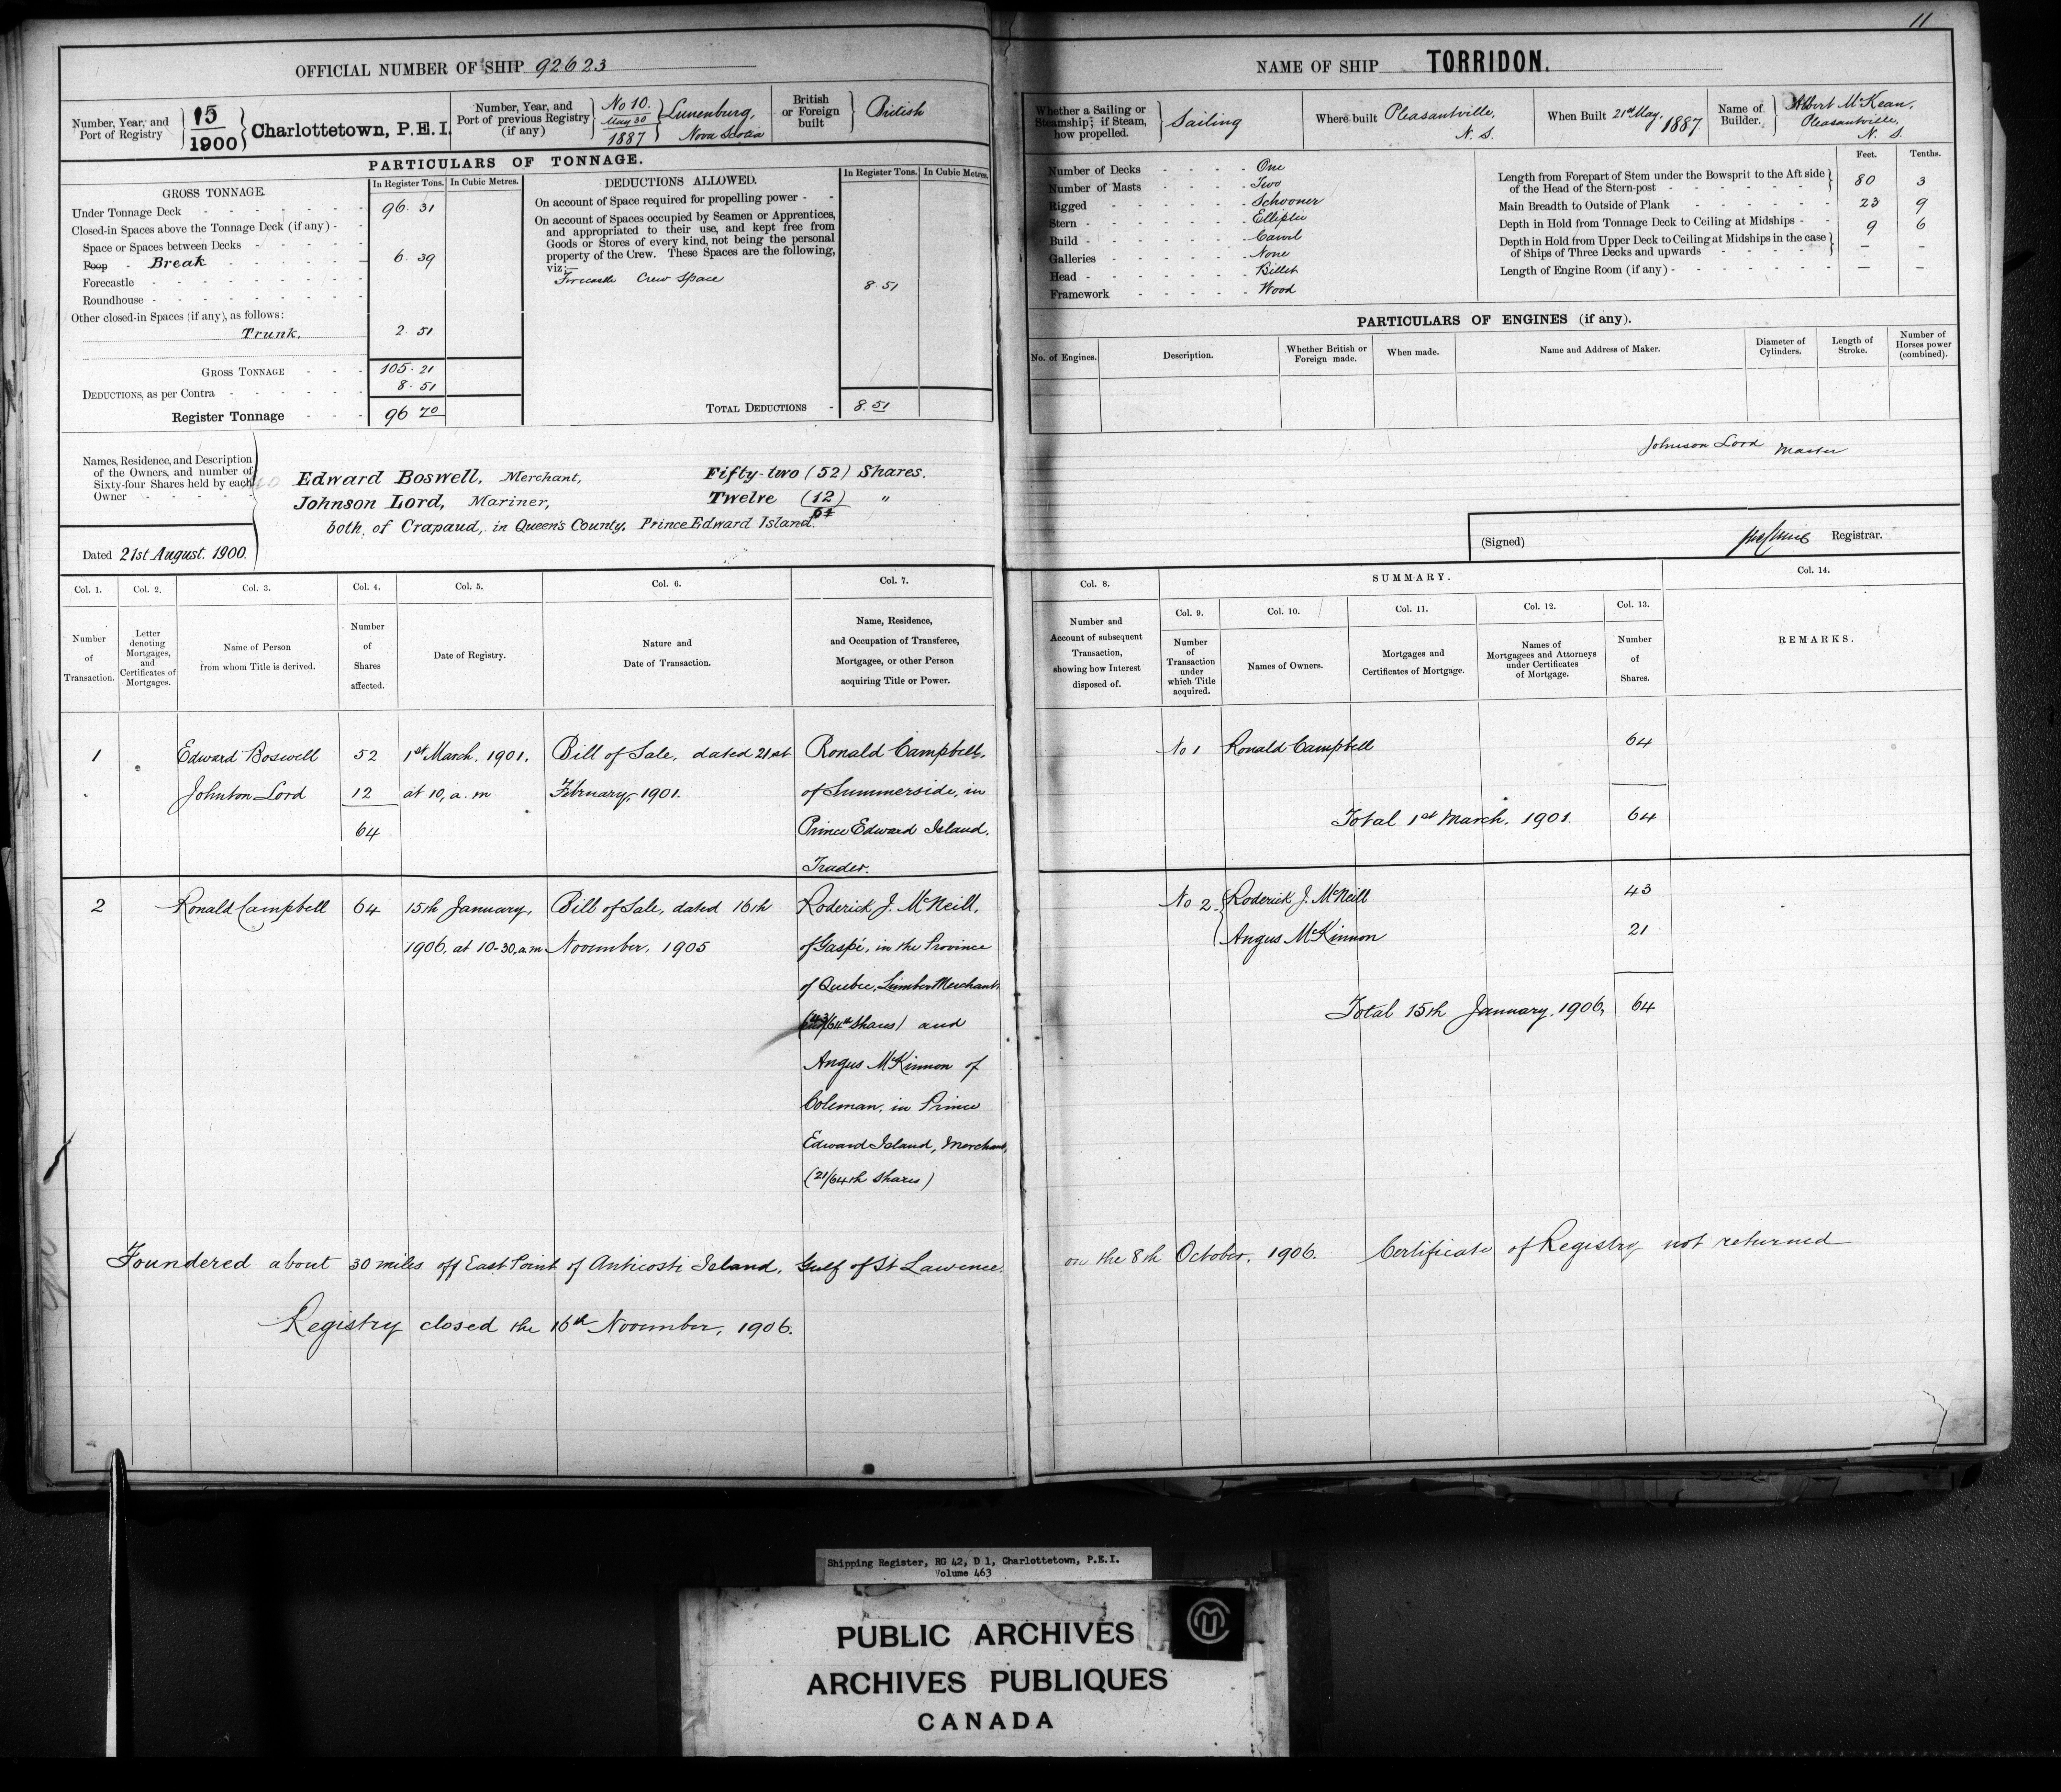 11
OFFICIAL NUMBER OF SHIP 92623
Number, Year, and
Port of Registry
15
1900
Charlottetown, P.E.I.
Number, Year, and
Port of previous Registry
(if any)
No 10.
May 30
1887
Lunenburg,
Nova Scotia
British
or Foreign
built
British
PARTICULARS OF TONNAGE.
GROSS TONNAGE.
In Register Tons. In Cubic Metres.
Under Tonnage Deck 96. 31
Closed-in Spaces above the Tonnage Deck (if any)
Space or Spaces between Decks
Poop Break 6. 39
Forecastle
Roundhouse
Other closed-in Spaces (if any), as follows:
Trunk. 2. 51
GROSS TONNAGE 105. 21
DEDUCTIONS, as per Contra 8. 51
Register Tonnage 96 70
DEDUCTIONS ALLOWED.
In Register Tons. In Cubic Metres.
On account of Space required for propelling power
On account of Spaces occupied by Seamen or Apprentices,
and appropriated to their use, and kept free from
Goods or Stores of every kind, not being the personal
property of the Crew. These Spaces are the following,
viz:—
Forecastle Crew Space 8. 51
TOTAL DEDUCTIONS 8. 51
Names, Residence, and Description
of the Owners, and number of
Sixty-four Shares held by each
Owner
Edward Boswell, Merchant, Fifty-two (52) Shares.
Johnson Lord, Mariner, Twelve (12) "
64
both, of Crapaud, in Queen's County, Prince Edward Island.
Dated 21st August. 1900.
NAME OF SHIP TORRIDON.
Whether a Sailing or
Steamship; if Steam,
how propelled.
Sailing
Where built Pleasantville,
N. S.
When Built 21st May, 1887
Name of
Builder.
Albert McKean,
Pleasantville,
N. S.
Number of Decks One
Number of Masts Two
Rigged Schooner
Stern Elliptic
Build Carvel
Galleries None
Head Billet
Framework Wood
Feet. Tenths.
Length from Forepart of Stem under the Bowsprit to the Aft side
of the Head of the Stern-post 80 3
Main Breadth to Outside of Plank 23 9
Depth in Hold from Tonnage Deck to Ceiling at Midships 9 6
Depth in Hold from Upper Deck to Ceiling at Midships in the case
of Ships of Three Decks and upwards — —
Length of Engine Room (if any) — —
PARTICULARS OF ENGINES (if any).
No. of Engines.
Description.
Whether British or
Foreign made.
When made.
Name and Address of Maker.
Diameter of
Cylinders.
Length of
Stroke.
Number of
Horses power
(combined).
Johnson Lord Master
(Signed) Registrar.
Col. 1. Col. 2. Col. 3. Col. 4. Col. 5. Col. 6. Col. 7.
Number
of
Transaction.
Letter
denoting
Mortgages,
and
Certificates of
Mortgages.
Name of Person
from whom Title is derived.
Number
of
Shares
affected.
Date of Registry.
Nature and
Date of Transaction.
Name, Residence,
and Occupation of Transferee,
Mortgagee, or other Person
acquiring Title or Power.
Col. 8.
SUMMARY.
Col. 14.
Col. 9. Col. 10. Col. 11. Col. 12. Col. 13.
Number and
Account of subsequent
Transaction,
showing how Interest
disposed of.
Number
of
Transaction
under
which Title
acquired.
Names of Owners.
Mortgages and
Certificates of Mortgage.
Names of
Mortgagees and Attorneys
under Certificates
of Mortgage.
Number
of
Shares.
REMARKS.
1 Edward Boswell 52 1st March, 1901. Bill of Sale, dated 21st Ronald Campbell,
Johnson Lord 12 at 10, a. m February, 1901. of Summerside, in
64 Prince Edward Island,
Trader.
No 1 Ronald Campbell 64
Total 1st March, 1901. 64
2 Ronald Campbell 64 15th January, Bill of Sale, dated 16th Roderick J. McNeill,
1906, at 10-30, a.m November, 1905 of Gaspé, in the Province
of Quebec, Lumber Merchant
(43/64th Shares) and
Angus McKinnon of
Coleman, in Prince
Edward Island, Merchant,
(21/64th Shares)
No 2 Roderick J. McNeill 43
Angus McKinnon 21
Total 15th January, 1906, 64
Foundered about 30 miles off East Point of Anticosti Island, Gulf of St Lawrence. on the 8th October, 1906. Certificate of Registry not returned
Registry closed the 16th November, 1906.
Shipping Register, RG 42, D 1, Charlottetown, P.E.I.
Volume 463
PUBLIC ARCHIVES
ARCHIVES PUBLIQUES
CANADA